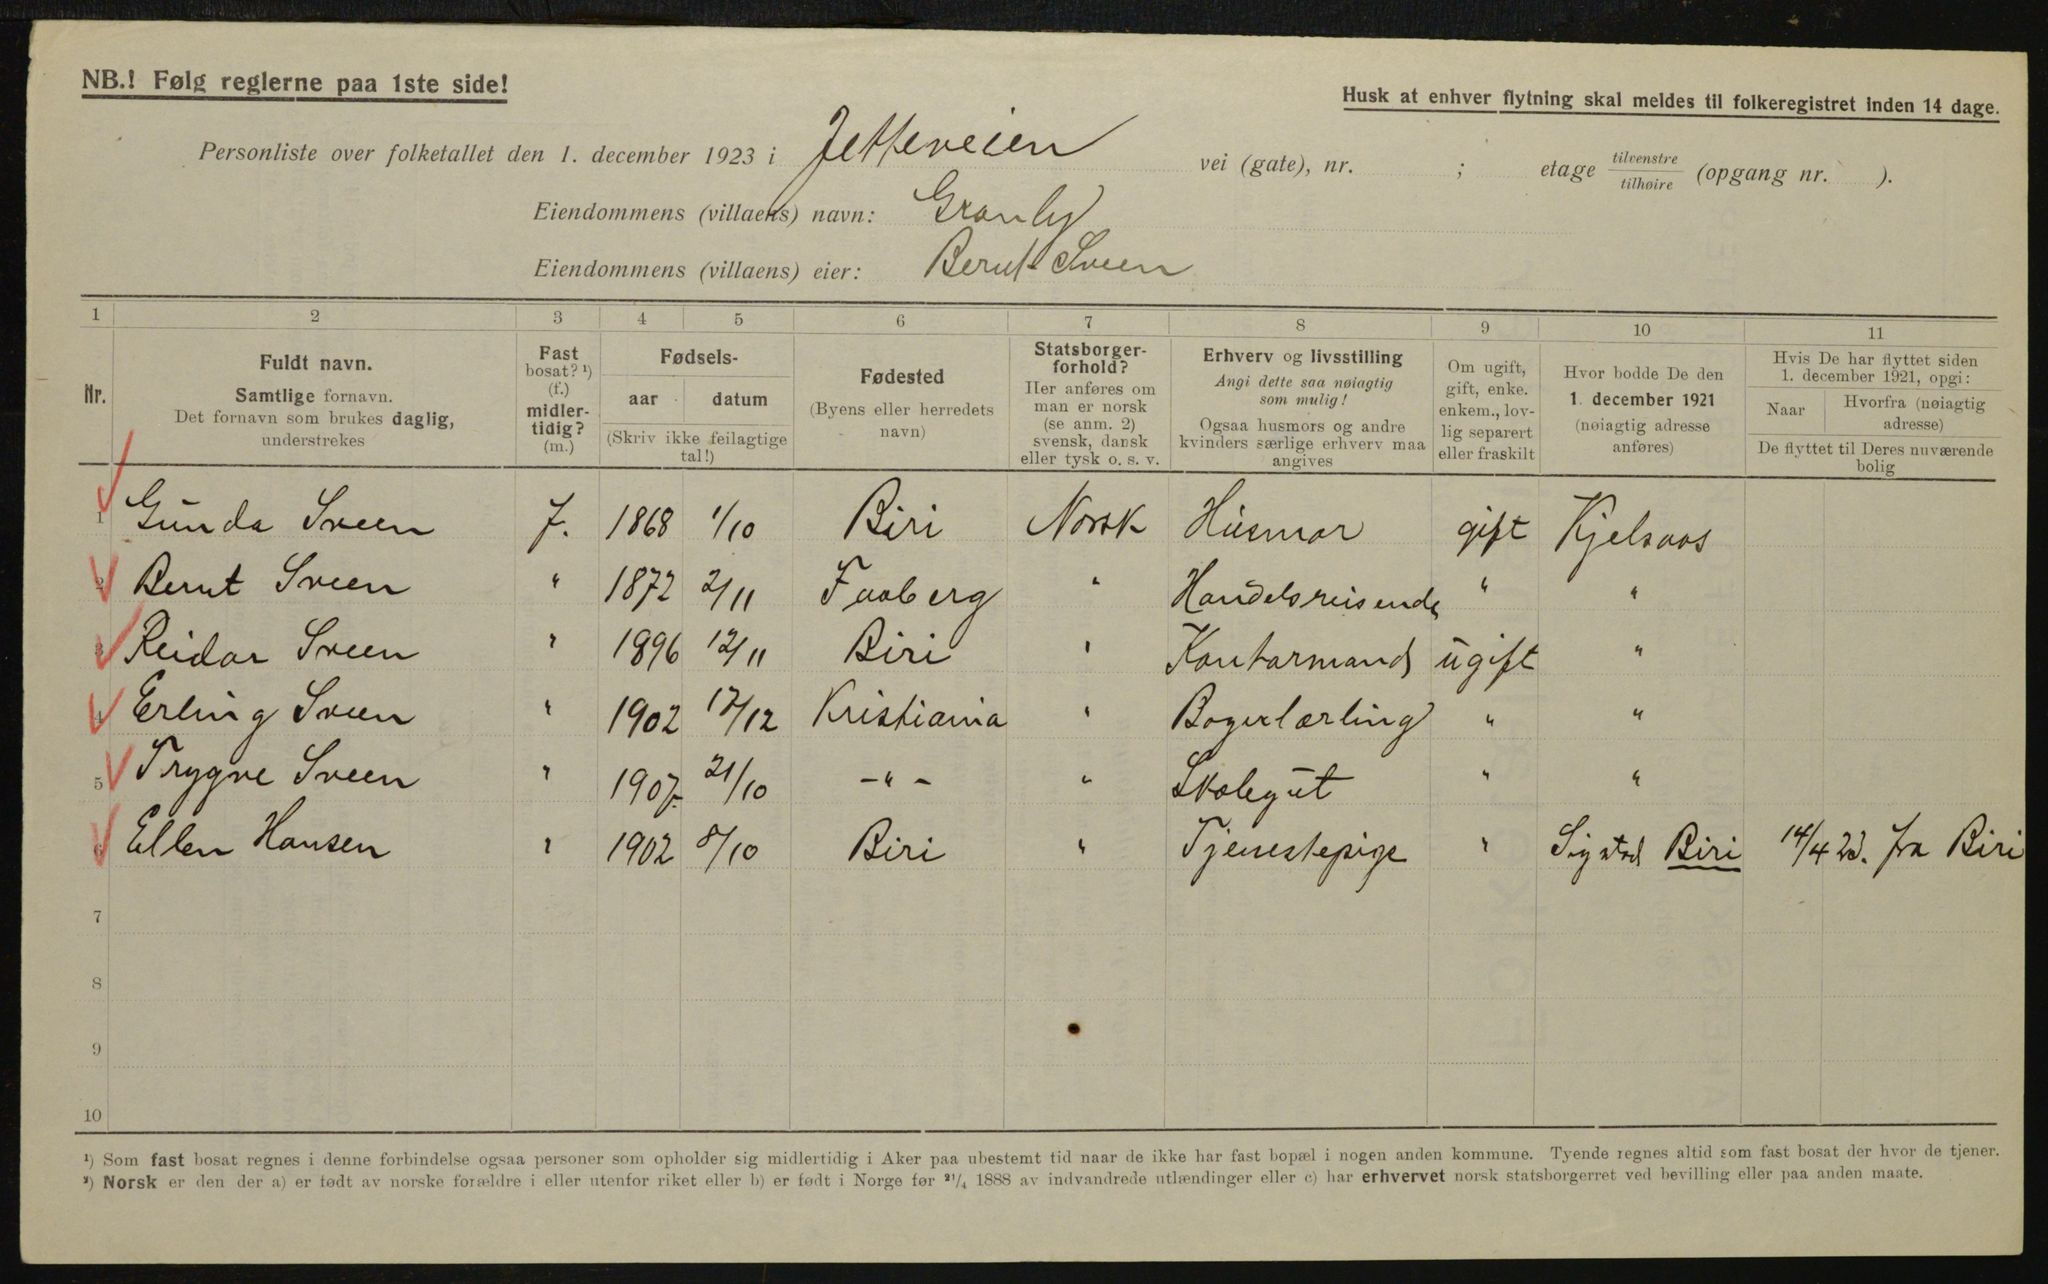 NB.! Følg reglerne paa 1ste side!
Husk at enhver flytning skal meldes til folkeregistret inden 14 dage.
Personliste over folketallet den 1. december 1923 i Jetteveien vei (gate), nr. ; etage tilvenstre/tilhøire (opgang nr. ).
Eiendommens (villaens) navn: Granly
Eiendommens (villaens) eier: Bernt Sveen
1 2 3 4 5 6 7 8 9 10 11
Nr.
Fuldt navn.
Samtlige fornavn.
Det fornavn som brukes daglig,
understrekes
Fast
bosat? ¹)
(f.)
midler-
tidig?
(m.)
Fødsels-
aar datum
(Skriv ikke feilagtige
tal!)
Fødested
(Byens eller herredets
navn)
Statsborger-
forhold?
Her anføres om
man er norsk
(se anm. 2)
svensk, dansk
eller tysk o. s. v.
Erhverv og livsstilling
Angi dette saa nøiagtig
som mulig!
Ogsaa husmors og andre
kvinders særlige erhverv maa
angives
Om ugift,
gift, enke.
enkem., lov-
lig separert
eller fraskilt
Hvor bodde De den
1. december 1921
(nøiagtig adresse
anføres)
Hvis De har flyttet siden
1. december 1921, opgi:
Naar Hvorfra (nøiagtig
adresse)
De flyttet til Deres nuværende
bolig
1 Gunda Sveen f. 1868 1/10 Biri Norsk Husmor gift Kjelsaas
2 Bernt Sveen " 1872 2/11 Faaberg " Handelsreisende " "
3 Reidar Sveen " 1896 12/11 Biri " Kontormand ugift "
4 Erling Sveen " 1902 17/12 Kristiania " Bagerlærling " "
5 Trygve Sveen " 1907. 21/10 -"- " Skolegut " "
6 Ellen Hansen " 1902 8/10 Biri " Tjenestepige " Sigstad Biri 14/4 23. fra Biri
7
8
9
10
¹) Som fast bosat regnes i denne forbindelse ogsaa personer som opholder sig midlertidig i Aker paa ubestemt tid naar de ikke har fast bopæl i nogen anden kommune. Tyende regnes altid som fast bosat der hvor de tjener.
²) Norsk er den der a) er født av norske forældre i eller utenfor riket eller b) er født i Norge før ²¹/₄ 1888 av indvandrede utlændinger eller c) har erhvervet norsk statsborgerret ved bevilling eller paa anden maate.